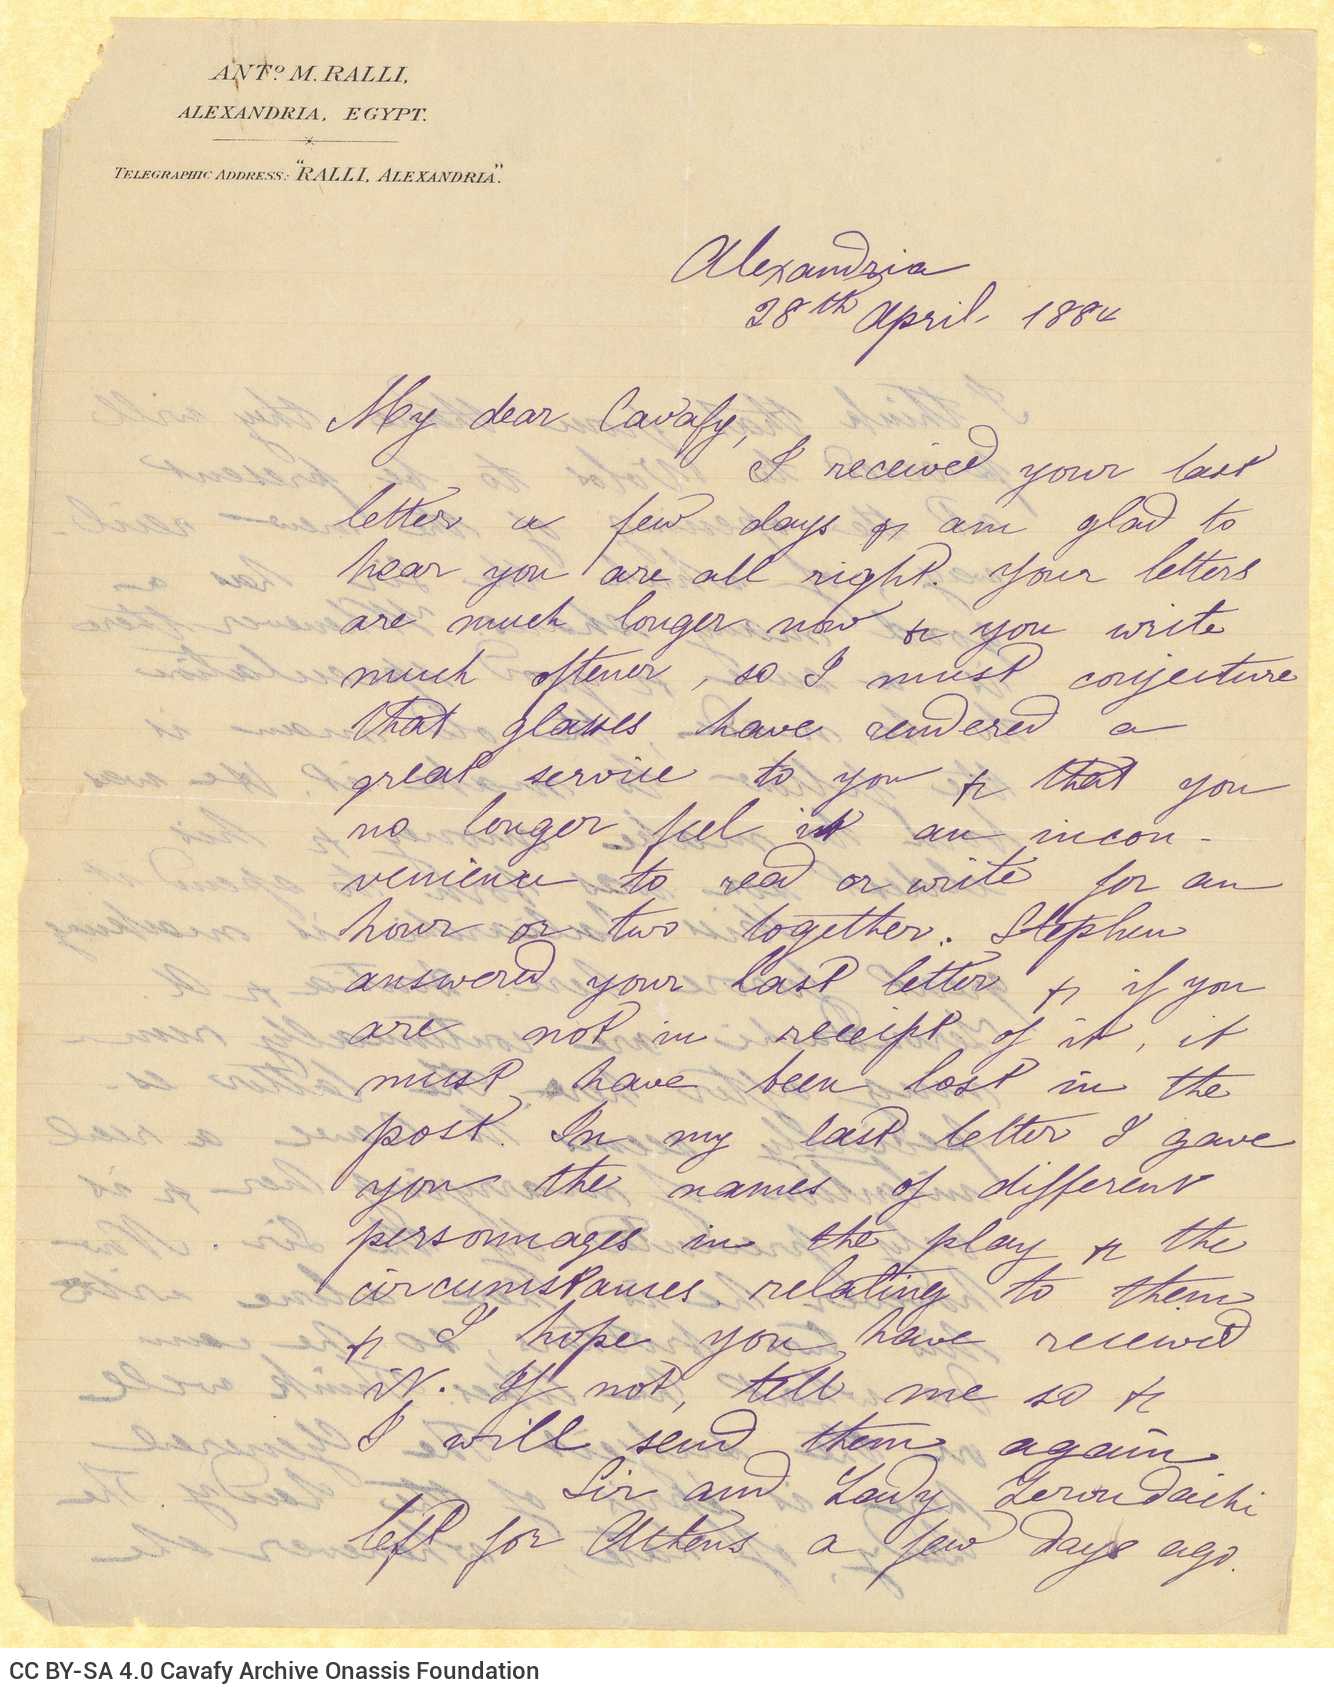 ANTº M. RALLI,
ALEXANDRIA, EGYPT.
TELEGRAPHIC ADDRESS: "RALLI, ALEXANDRIA".
Alexandria
28th April 1884
My dear Cavafy,
I received your last
letter a few days & am glad to
hear you are all right. Your letters
are much longer now & you write
much oftener, so I must conjecture
that glasses have rendered a
great service to you & that you
no longer feel it an incon-
venience to read or write for an
hour or two together. Stephen
answered your last letter & if you
are not in receipt of it, it
must have been lost in the
post. In my last letter I gave
you the names of different
personnages in the play & the
circumstances relating to them
& I hope you have received
it. If not, tell me so &
I will send them again
Sir and Lady Zervudachi
left for Athens a few days ago.
CC BY-SA 4.0 Cavafy Archive Onassis Foundation